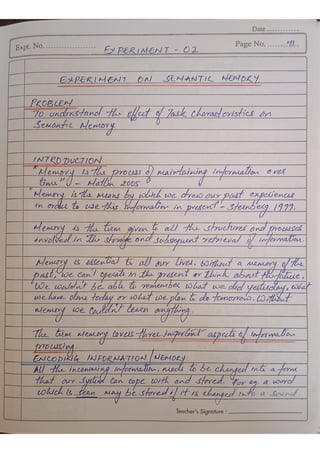 Date ............
Expt. No. ...................
EXPERIMENT - 02
Page No. ........
EXPERIMENT ON SEMANTIC MEMORY
PROBLEM
To understand the effect of Task characteristics on
Semantic Memory
INTRODUCTION
"Memory is the process of maintaining information over
time" - Matlin 2005
"Memory is the means by which we draw our past experiences
in order to use this information in present" - Sternberg 1999.
Memory is the term given to all the structures and processes
involved in the storage and subsequent retrieval of information.
Memory is essential to all our lives. Without a memory of the
past, we can't operate in the present or think about the future.
We wouldn't be able to remember what we did yesterday, what
we have done today or what we plan to do tomorrow. Without
memory we couldn't learn anything.
The term memory covers three important aspects of information
processing.
ENCODING INFORMATION / MEMORY
All the incoming information needs to be changed into a form
that our system can cope with and stored. For eg. a word
which is seen may be stored if it is changed into a sound
Teacher's Signature : ____________